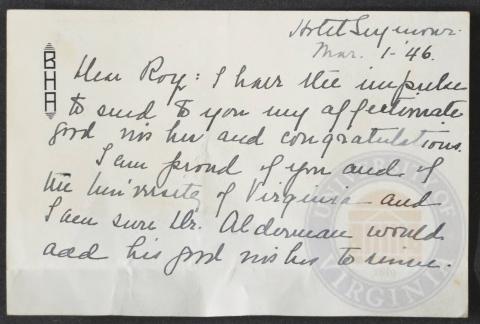 Hotel Seymour.
Mar. 1-'46.
BHA
Dear Roy: I have the impulse
to send to you my affectionate
good wishes and congratulations.
I am proud of you and of
the University of Virginia and
I am sure Dr. Alderman would
add his good wishes to mine.
UNIVERSITY OF VIRGINIA